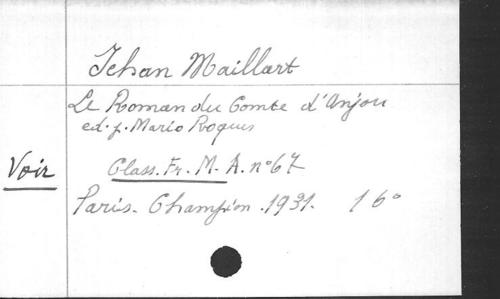 Jehan Maillart
Le Roman du Comte d'Anjou
ed. p. Mario Roques
Voir Class. Fr. M. A. n°67
Paris. Champion. 1931. 16°